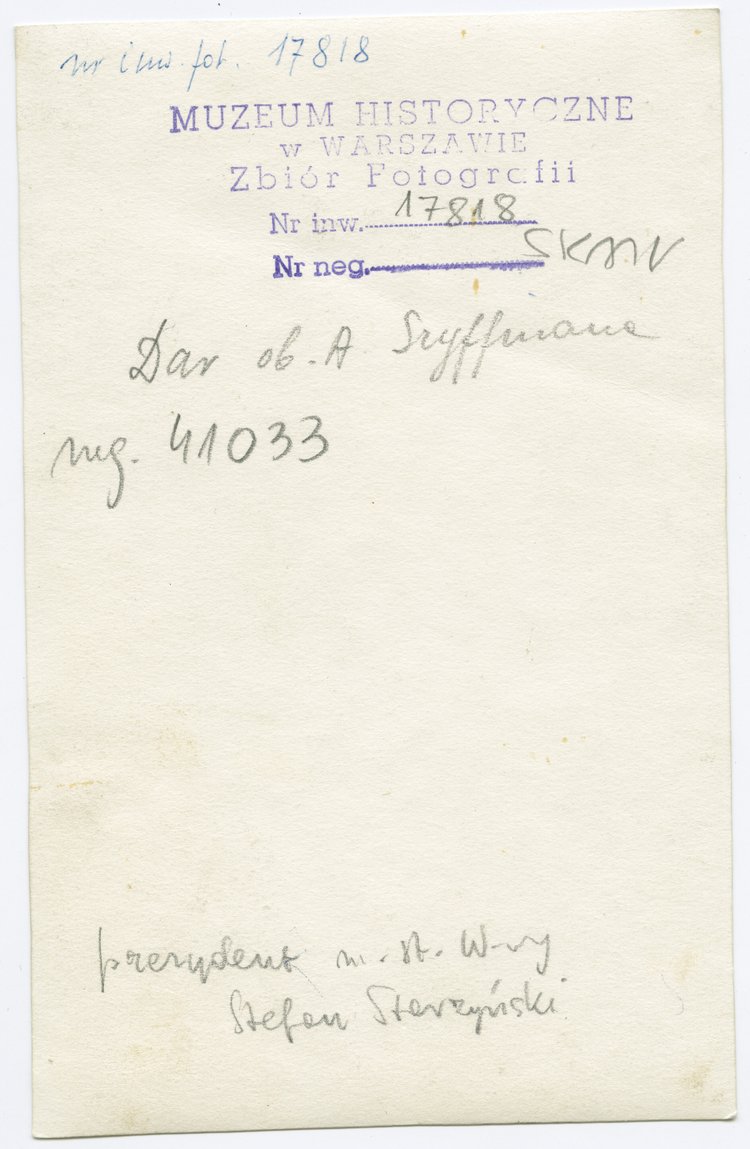 nr inw. fot. 17818
MUZEUM HISTORYCZNE
w WARSZAWIE
Zbiór Fotografii
Nr inw. 17818
SKAN
Nr neg.
Dar ob. A Szyffmana
neg. 41033
prezydent m. st. W-wy
Stefan Starzyński